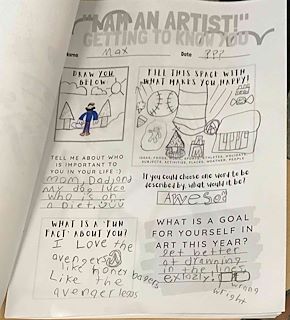 "I AM AN ARTIST!"
GETTING TO KNOW YOU
Name Max Date ???
DRAW YOU
BELOW:
FILL THIS SPACE WITH
WHAT MAKES YOU HAPPY!
IDEAS: FOODS, MUSIC, SPORTS, ATHLETES, HOLIDAYS,
SUBJECTS, ACTIVITIES, PLACES, WEATHER, PEOPLE
TELL ME ABOUT WHO
IS IMPORTANT TO
YOU IN YOUR LIFE :)
mom, Dad, and
my dog Luca
who is on
a Diet,
If you could choose one word to be
described by, what would it be?
Aweso
WHAT IS A "FUN
FACT" ABOUT YOU?
I Love the
avengers
I like honey badgers
Like the
avenger legos
WHAT IS A GOAL
FOR YOURSELF IN
ART THIS YEAR?
get better
at drawning
in the lines
exlazly!
wrong
wright